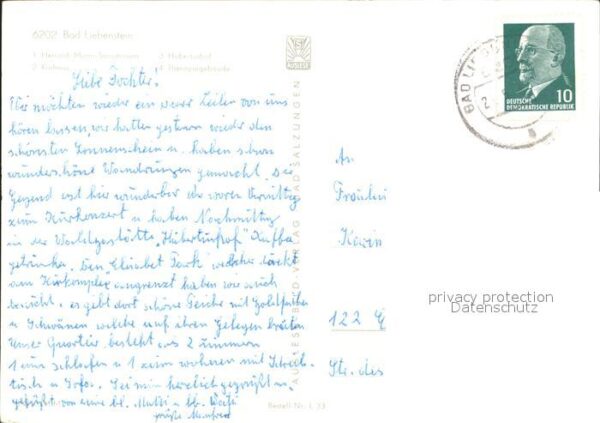 6202 Bad Liebenstein
1 Heinrich Mann-Sanatorium 3 Hubertushof
2 Kurhaus 4 Thermengebäude
Liebe Tochter!
Wir möchten wieder ein paar Zeilen von uns
hören lassen, wir hatten gestern wieder den
schönsten Sonnenschein u. haben schon
wunderschöne Wanderungen gemacht. Die
Gegend ist hier wunderbar wir waren Vormittag
zum Kurkonzert u. haben Nachmittag
in der Waldgaststätte "Hubertushof" Kaffee
getrunken. Den Elisabet Park welcher direkt
am Kurkomplex angrenzt haben wir auch
besucht. es gibt dort schöne Teiche mit Goldfische
u. Schwänen welche auf ihren Gelegen brüten
Unser Quartier besteht aus 2 Zimmern
1 zum schlafen u. 1 zum wohnen mit Schreib-
tisch u. Sofa. Sei nun herzlich gegrüßt u.
geküßt von Deine lb. Mutti u. lb.
VERLAG BAD SALZUNGEN
Bestell Nr. L 33
BAD LIEBENSTEIN
DEUTSCHE
DEMOKRATISCHE REPUBLIK
10
An
Fräulein
Karin
122 E
Str. des
privacy protection
Datenschutz